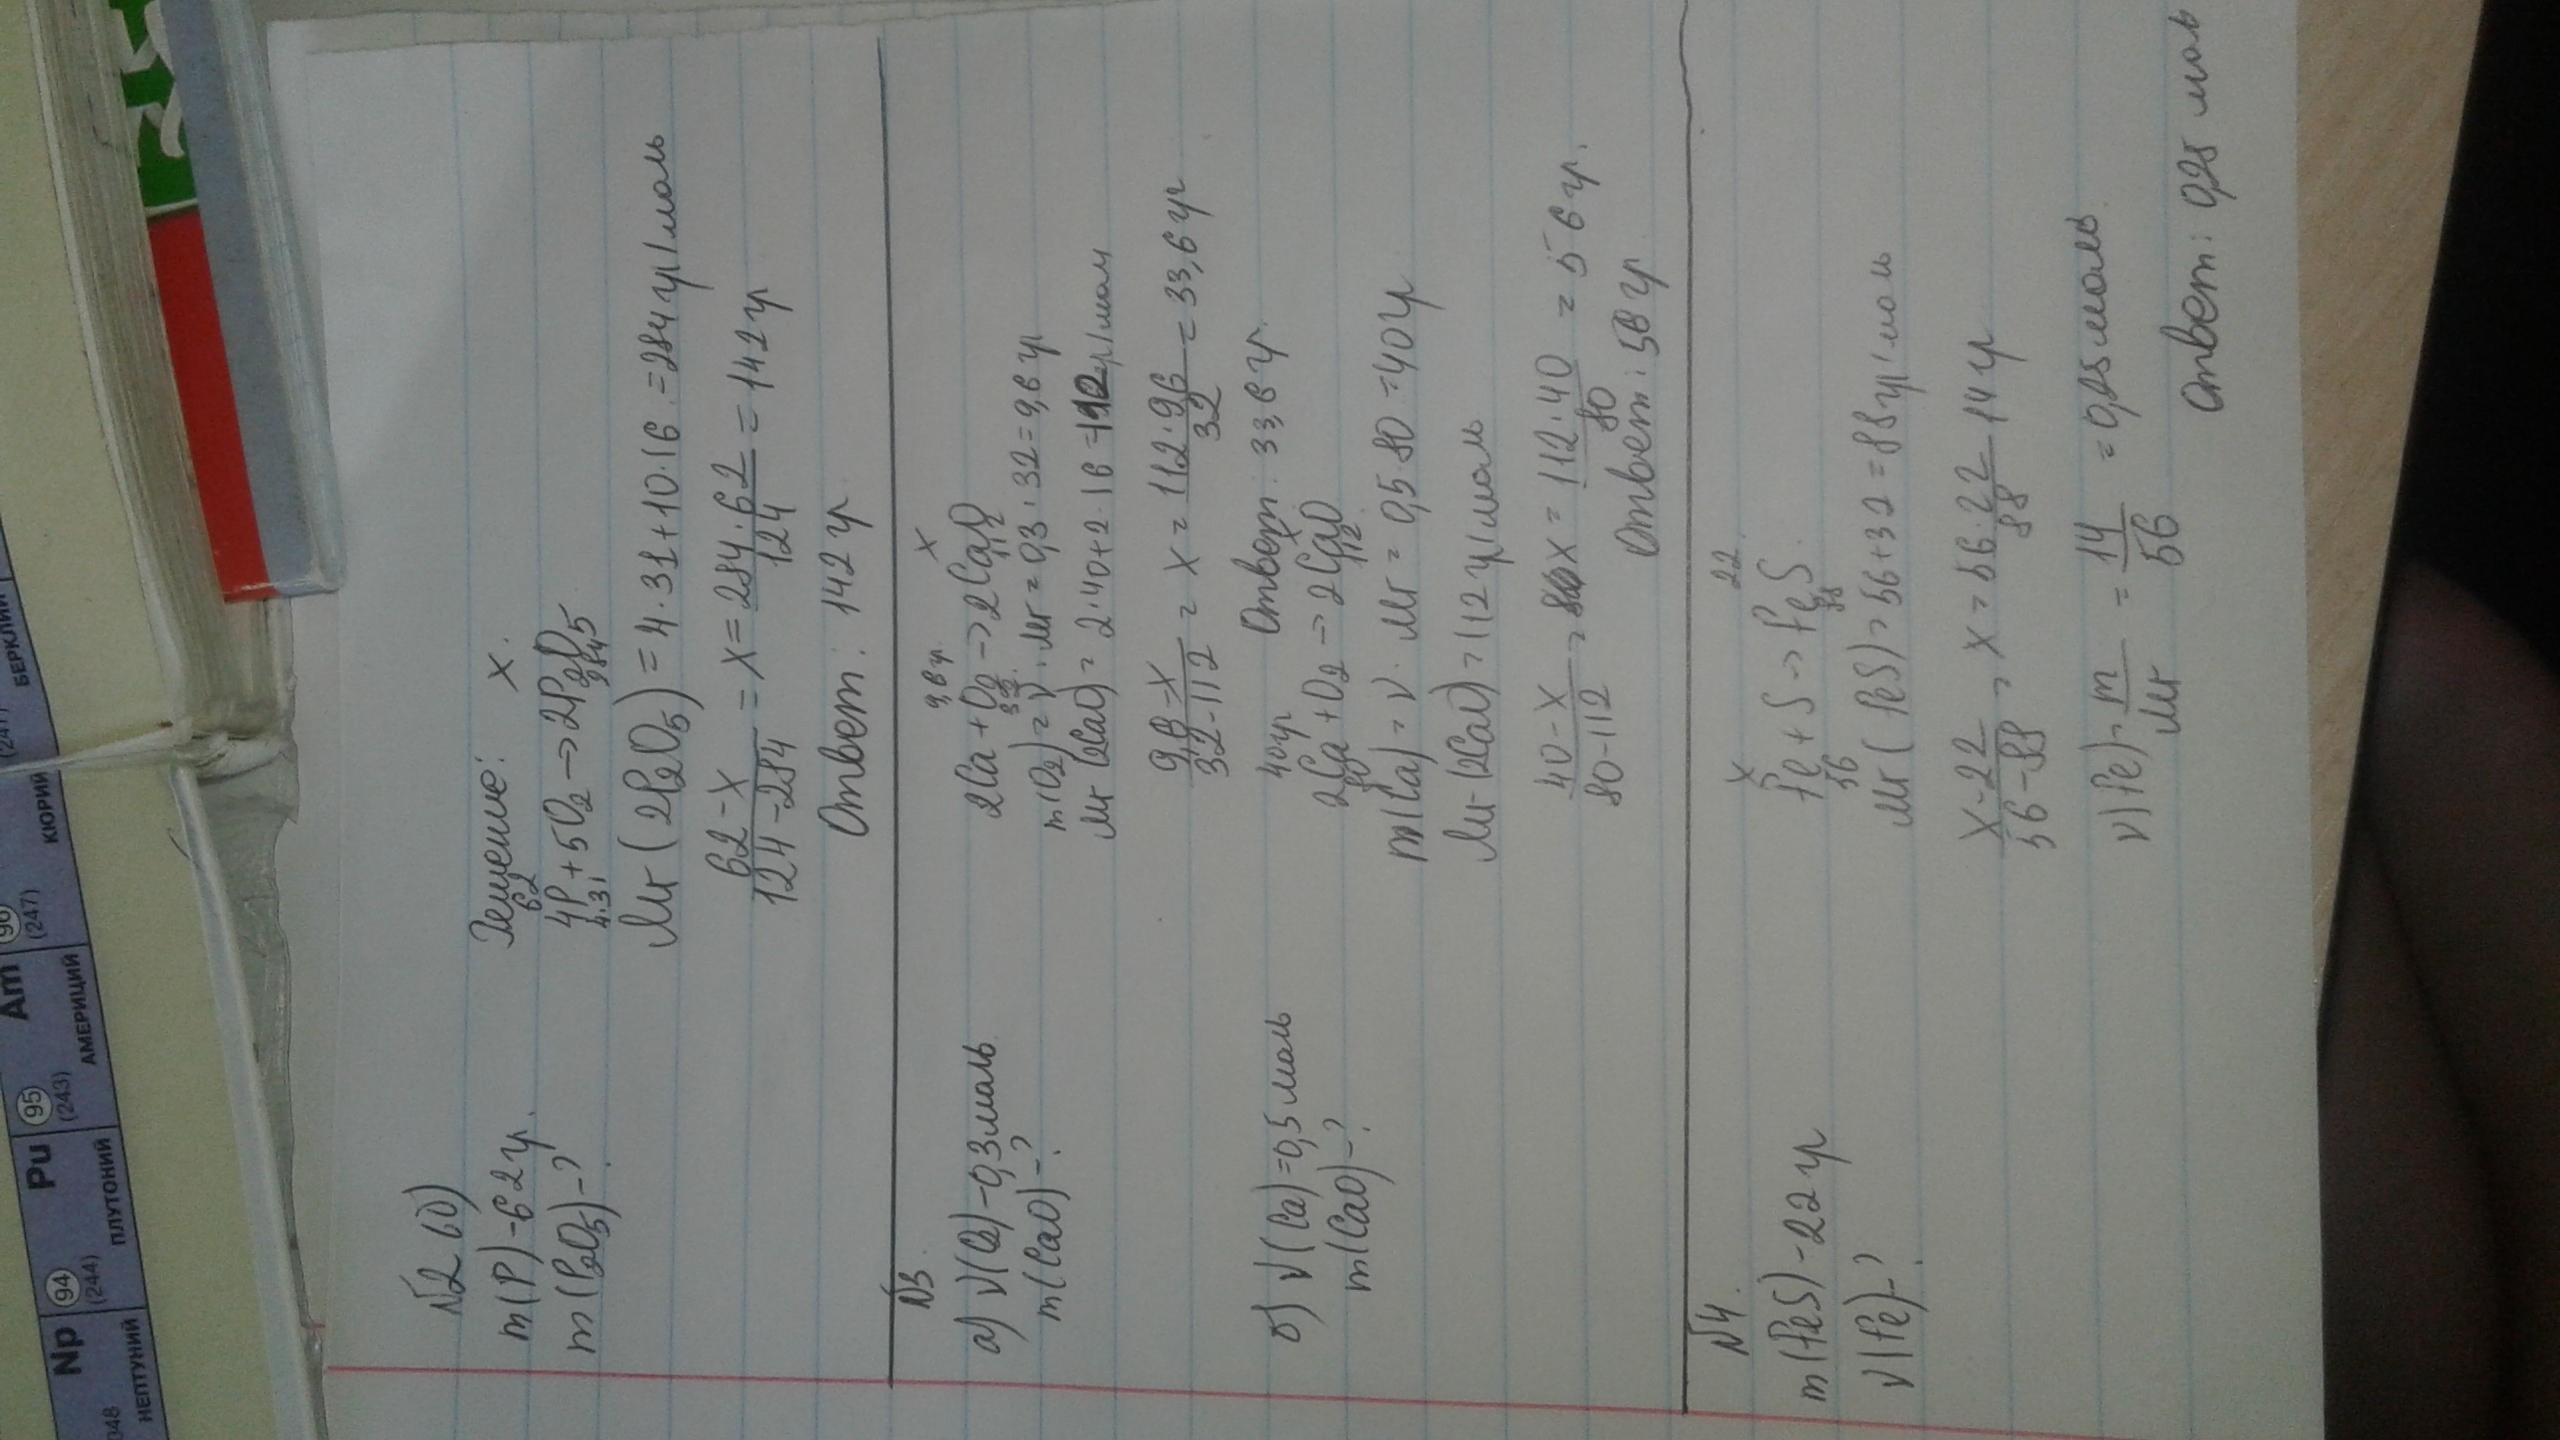 Np 94 Pu 95 Am 96
048 (244) (243) (247) (247)
НЕПТУНИЙ ПЛУТОНИЙ АМЕРИЦИЙ КЮРИЙ БЕРКЛИЙ
№2 б)
m(P)-62 гр.
m(P2O5)-?
Решение:
62 x.
4P + 5O2 -> 2P2O5
4·31 284
Mr (2P2O5) = 4·31+10·16 = 284 гр/моль
62-x
124-284 = x = 284·62
124 = 142 гр
Ответ: 142 гр.
№3.
а) ν(O2)-0,3 моль
m(CaO)-?
9,6 гр. x
2Ca + O2 -> 2CaO
32 112
m(O2) = ν·Mr = 0,3·32 = 9,6 гр
Mr (2CaO) = 2·40+2·16 = 112 гр/моль
9,6-x
32-112 = x = 112·96
32 = 33,6 гр
Ответ: 33,6 гр.
б) ν(Ca)=0,5 моль
m(CaO)-?
40 гр x
2Ca + O2 -> 2CaO
80 112
m(Ca) = ν·Mr = 0,5·80 = 40 гр
Mr (2CaO) = 112 гр/моль
40-x
80-112 = x = 112·40
80 = 56 гр.
Ответ: 56 гр.
№4.
m(FeS)-22 гр
ν(Fe)-?
x 22
Fe + S -> FeS.
56 88
Mr (FeS) = 56+32 = 88 гр/моль
x-22
56-88 = x = 56·22
88 14 гр
ν(Fe) = m
Mr = 14
56 = 0,25 моль
Ответ: 0,25 моль